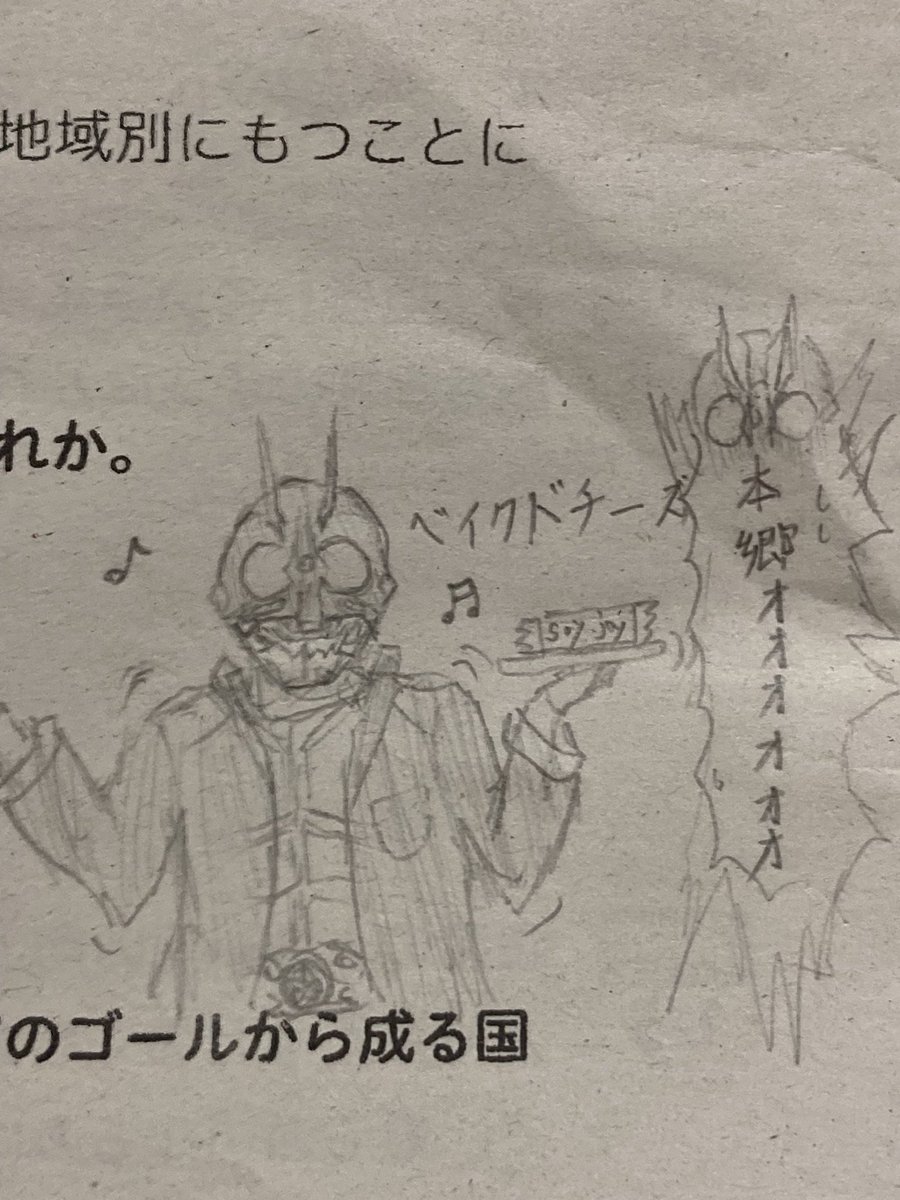 地域別にもつことに
れか。
ベイクドチーズ
soy joy
本郷オオオオオオ
のゴールから成る国